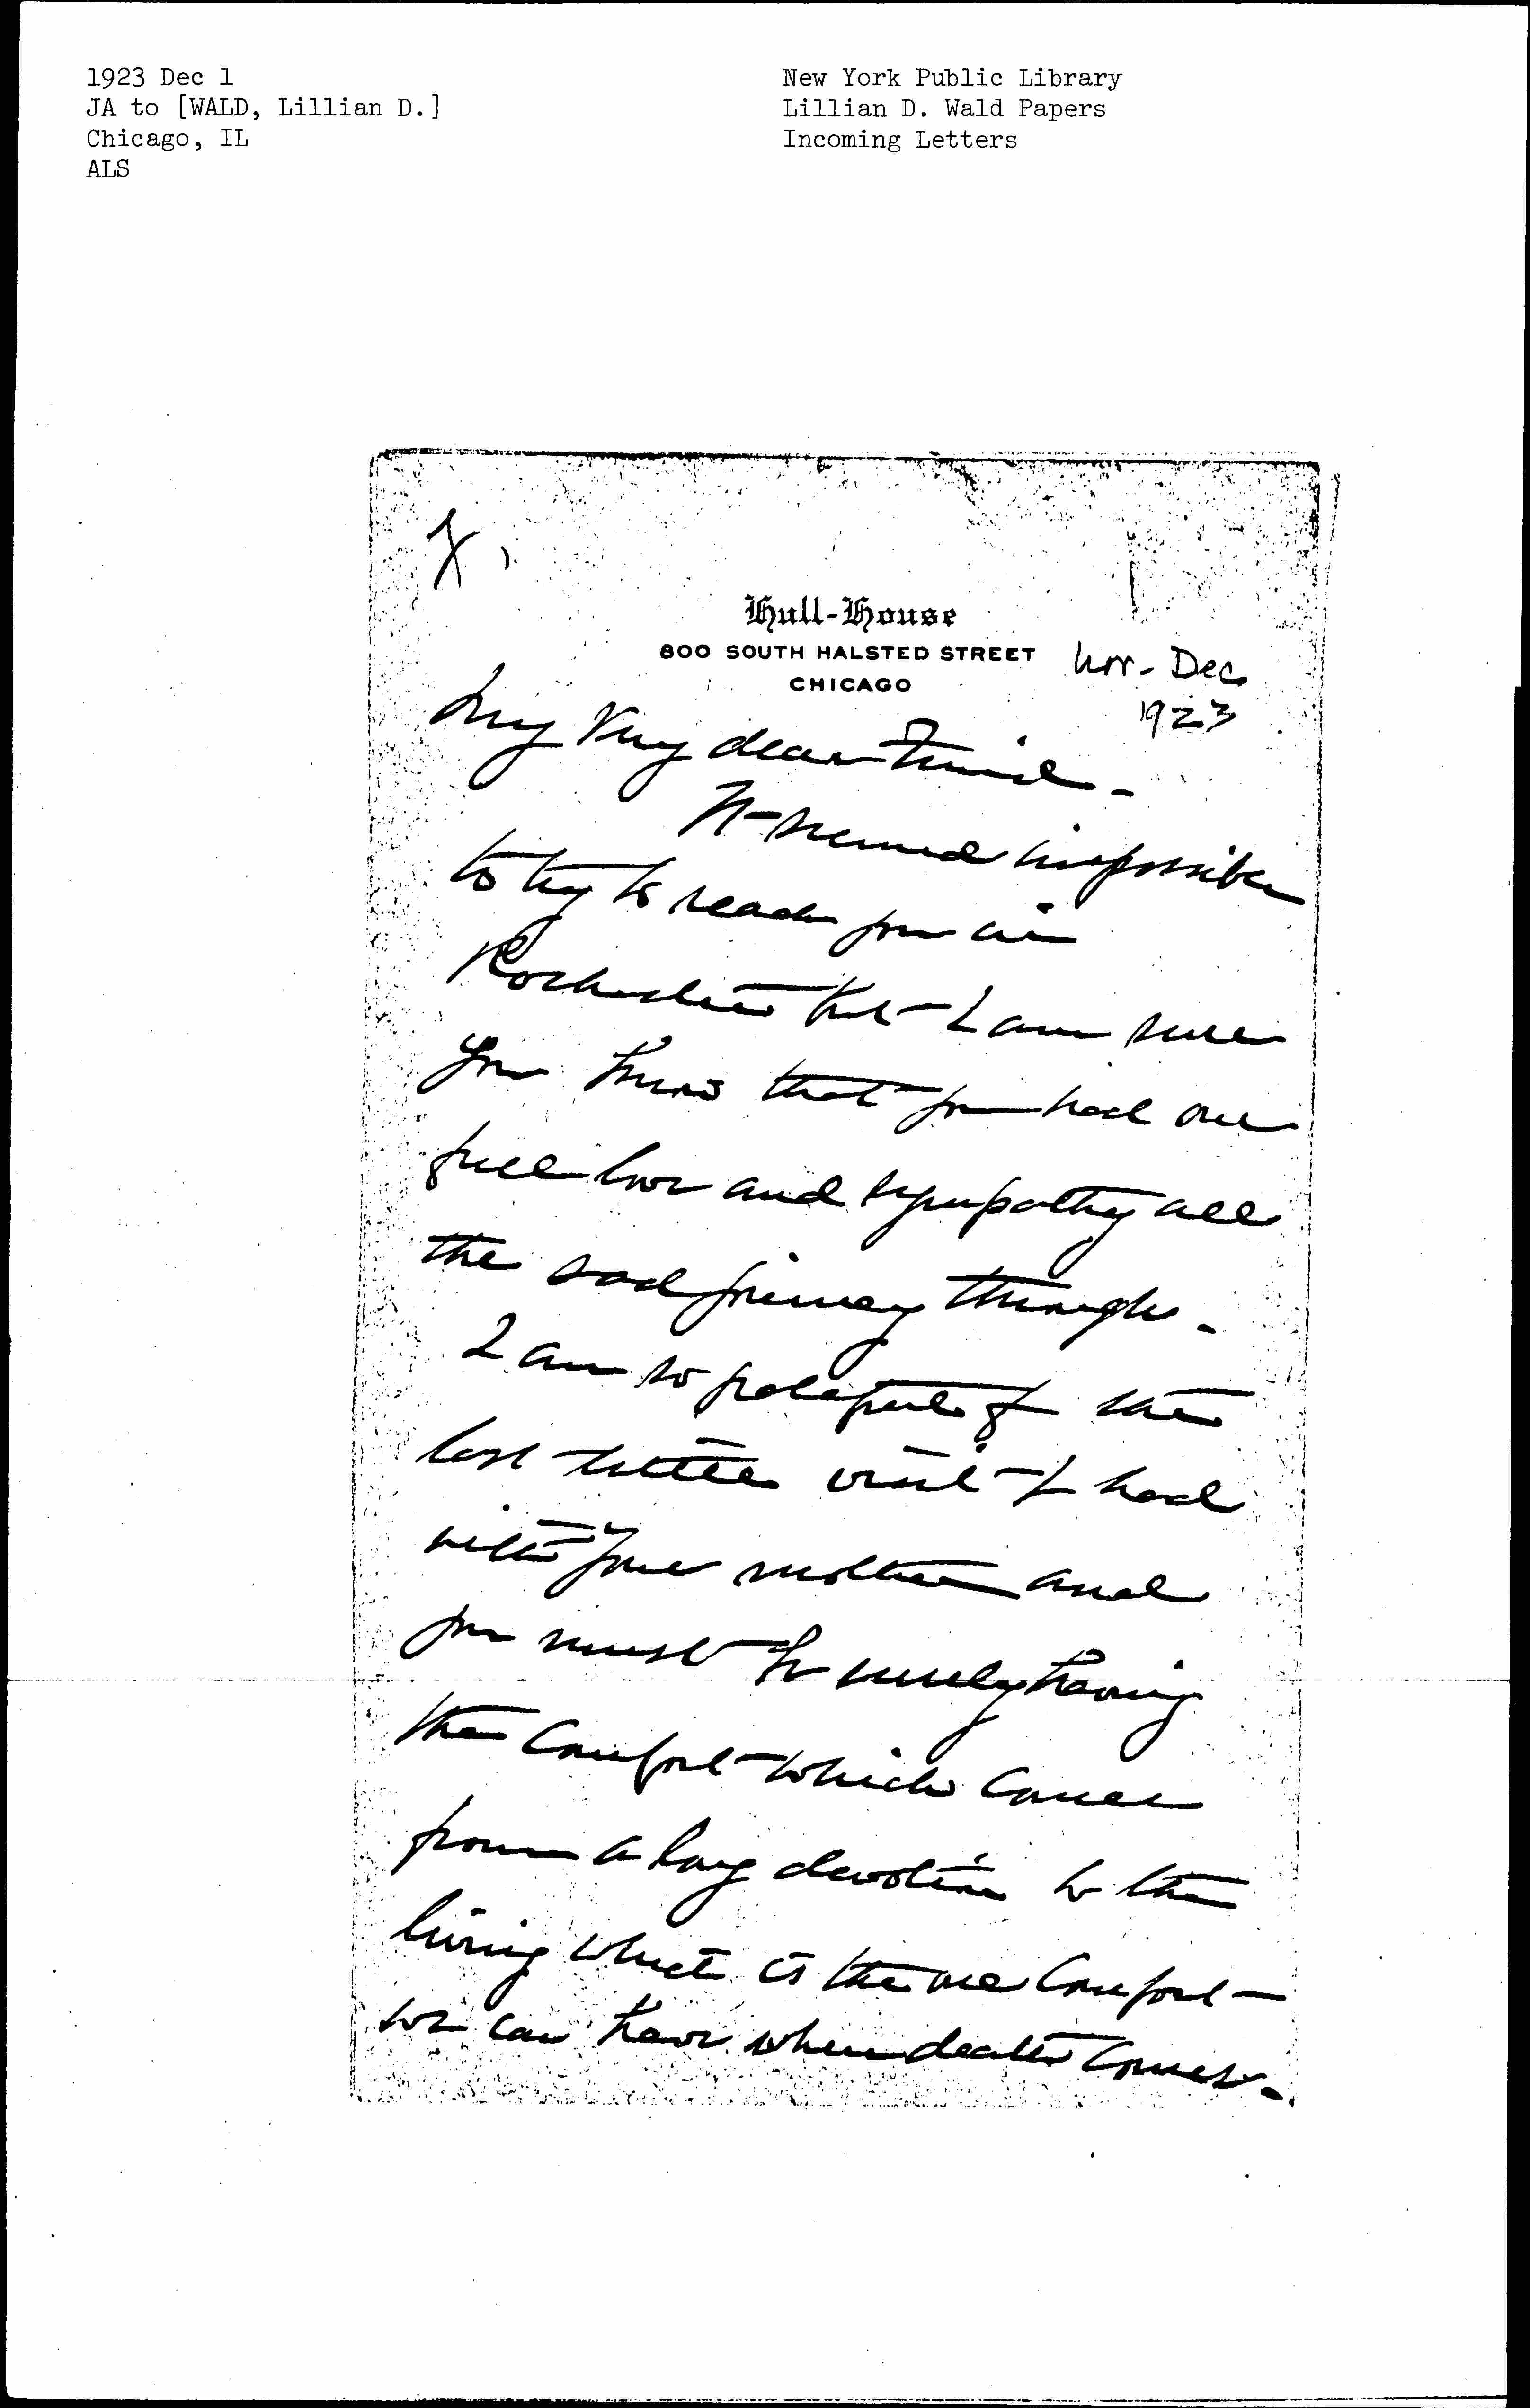 1923 Dec 1
JA to [WALD, Lillian D.]
Chicago, IL
ALS
New York Public Library
Lillian D. Wald Papers
Incoming Letters
Hull-House
800 SOUTH HALSTED STREET
CHICAGO
Nov-Dec
1923
My very dear Friend -
It seemed impossible
to try to reach you in
Rochester but I am sure
you know that you had our
full love and sympathy all
the sad journey through -
I am so grateful for the
last little visit I had
with your mother and
you must be surely having
the comfort which comes
from a long devotion to the
living which is the one comfort
we can have when death comes -